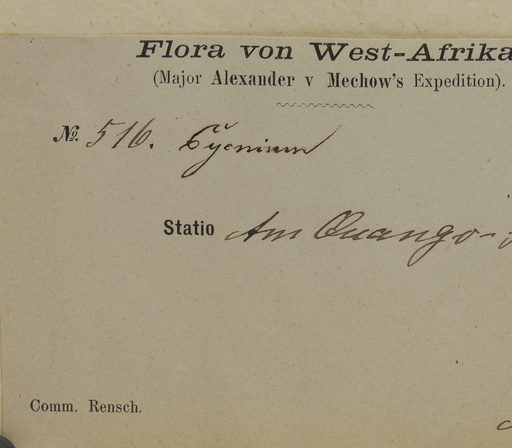 Flora von West-Afrika
(Major Alexander v Mechow's Expedition).
No. 516. Cycnium
Statio Am Quango-
Comm. Rensch.